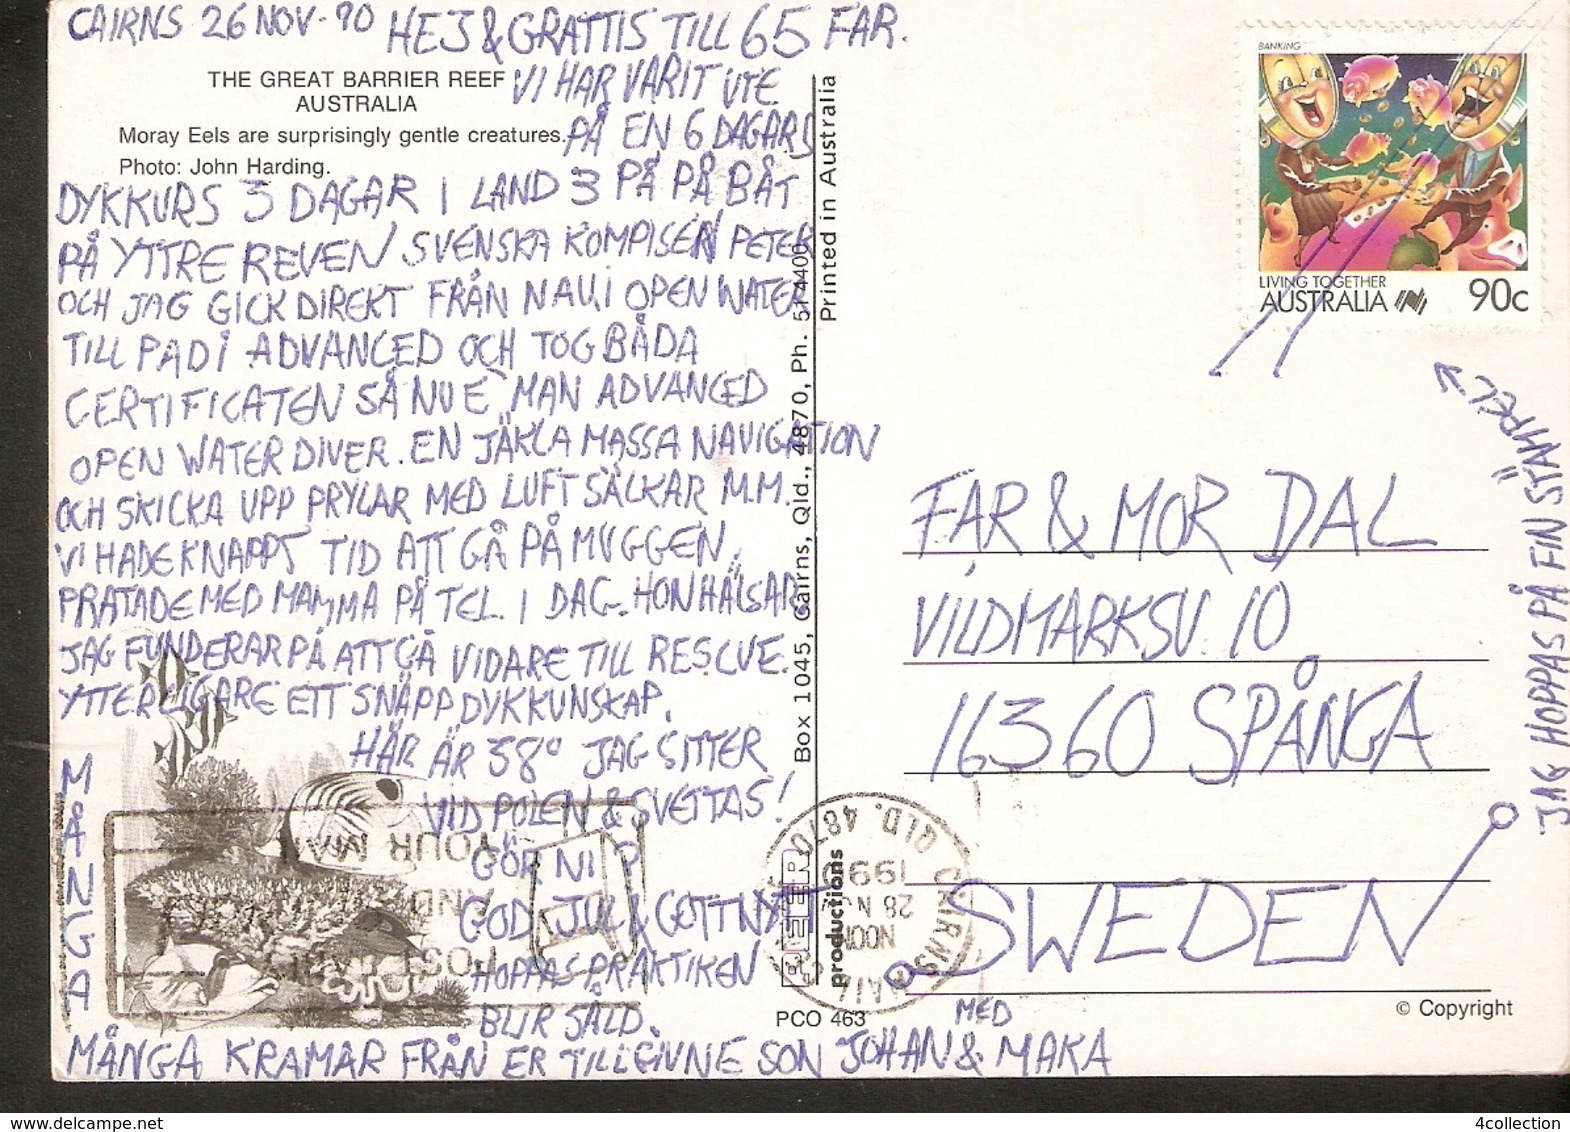 CAIRNS 26 NOV -90 HEJ & GRATTIS TILL 65 FAR.
THE GREAT BARRIER REEF
AUSTRALIA
Moray Eels are surprisingly gentle creatures.
Photo: John Harding.
VI HAR VARIT UTE
PÅ EN 6 DAGARS
DYKKURS 3 DAGAR I LAND 3 PÅ PÅ BÅT
PÅ YTTRE REVEN SVENSKA KOMPISEN PETER
OCH JAG GICK DIREKT FRÅN NAUI OPEN WATER
TILL PADI ADVANCED OCH TOG BÅDA
CERTIFICATEN SÅ NU E MAN ADVANCED
OPEN WATER DIVER. EN JÄKLA MASSA NAVIGATION
OCH SKICKA UPP PRYLAR MED LUFTSÄCKAR M.M.
VI HADE KNAPPT TID ATT GÅ PÅ MUGGEN.
PRATADE MED MAMMA PÅ TEL. I DAG. HON HÄLSAR
JAG FUNDERAR PÅ ATT GÅ VIDARE TILL RESCUE.
YTTERLIGARE ETT SNÄPP DYKKUNSKAP.
HÄR ÄR 38° JAG SITTER
VID POLEN & SVETTAS!
GÖR NI?
GOD JUL & GOTT NYTT
HOPPAS PRAKTIKEN
BLIR SÅLD.
MÅNGA
MÅNGA KRAMAR FRÅN ER TILLGIVNE SON JOHAN & MAKA
MED
Box 1045, Cairns, Qld., 4870, Ph. 514400
Printed in Australia
PEER
productions
PCO 463
© Copyright
BANKING
LIVING TOGETHER
AUSTRALIA 90c
FAR & MOR DAL
VILDMARKSV. 10
16360 SPÅNGA
SWEDEN
JAG HOPPAS PÅ FIN STÄMPEL
POST EARLY
AND
YOUR MAIL
CAIRNS MAIL CENTRE
QLD. 4870
NOON
28 N
199
4collection